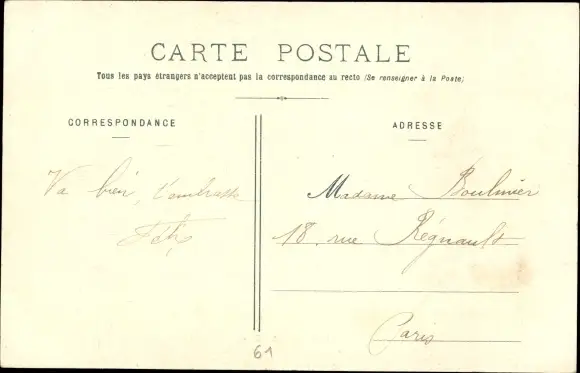 CARTE POSTALE
Tous les pays étrangers n'acceptent pas la correspondance au recto (Se renseigner à la Poste)
CORRESPONDANCE
ADRESSE
Va bien, t'embrasse
Madame Boulinier
18, rue Régnault
Paris
61